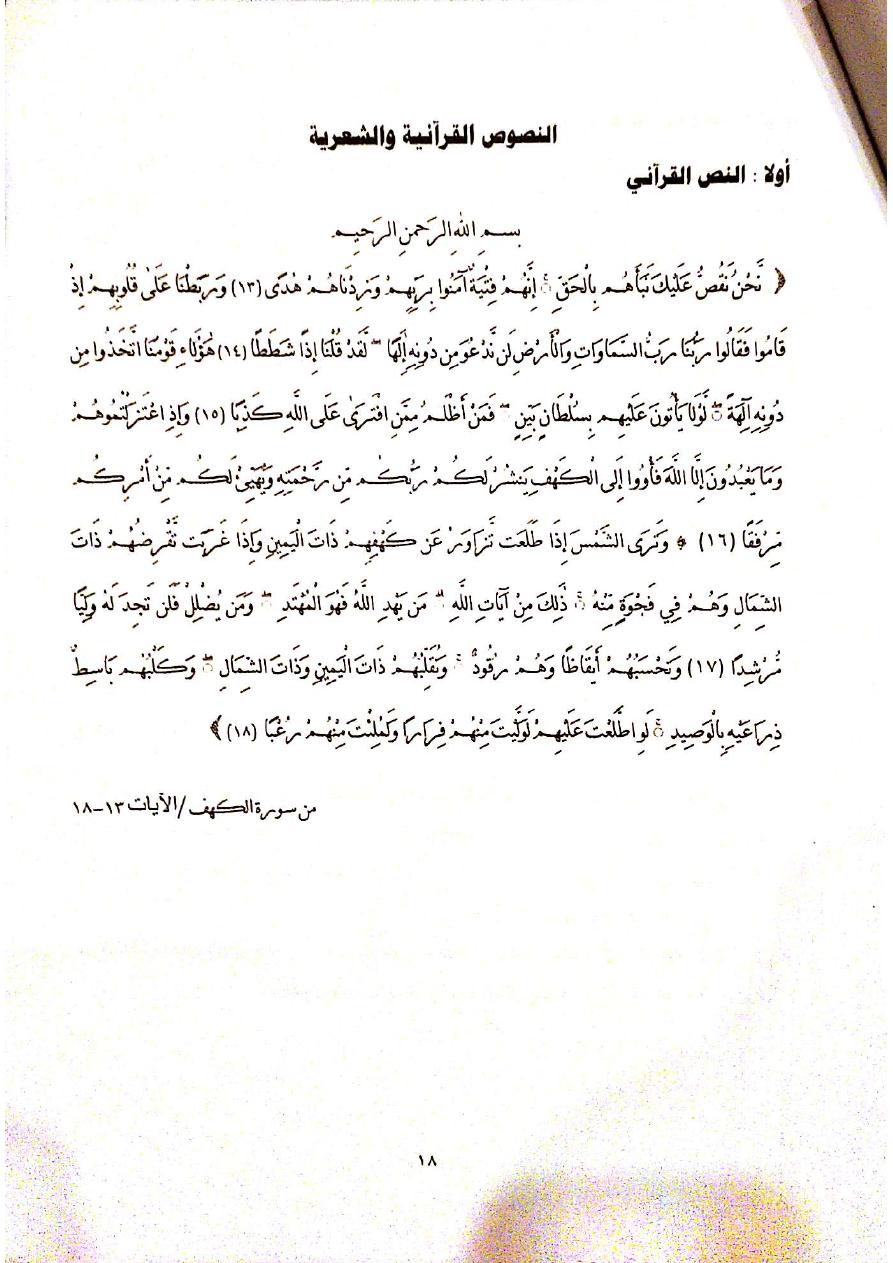 النصوص القرآنية والشعرية
أولا : النص القرآني
بسم الله الرحمن الرحيم
﴿ نَّحْنُ نَقُصُّ عَلَيْكَ نَبَأَهُم بِالْحَقِّ ۚ إِنَّهُمْ فِتْيَةٌ آمَنُوا بِرَبِّهِمْ وَزِدْنَاهُمْ هُدًى (١٣) وَرَبَطْنَا عَلَىٰ قُلُوبِهِمْ إِذْ
قَامُوا فَقَالُوا رَبُّنَا رَبُّ السَّمَاوَاتِ وَالْأَرْضِ لَن نَّدْعُوَ مِن دُونِهِ إِلَٰهًا ۖ لَّقَدْ قُلْنَا إِذًا شَطَطًا (١٤) هَٰؤُلَاءِ قَوْمُنَا اتَّخَذُوا مِن
دُونِهِ آلِهَةً ۖ لَّوْلَا يَأْتُونَ عَلَيْهِم بِسُلْطَانٍ بَيِّنٍ ۖ فَمَنْ أَظْلَمُ مِمَّنِ افْتَرَىٰ عَلَى اللَّهِ كَذِبًا (١٥) وَإِذِ اعْتَزَلْتُمُوهُمْ
وَمَا يَعْبُدُونَ إِلَّا اللَّهَ فَأْوُوا إِلَى الْكَهْفِ يَنشُرْ لَكُمْ رَبُّكُم مِّن رَّحْمَتِهِ وَيُهَيِّئْ لَكُم مِّنْ أَمْرِكُم
مِّرْفَقًا (١٦) ۞ وَتَرَى الشَّمْسَ إِذَا طَلَعَت تَّزَاوَرُ عَن كَهْفِهِمْ ذَاتَ الْيَمِينِ وَإِذَا غَرَبَت تَّقْرِضُهُمْ ذَاتَ
الشِّمَالِ وَهُمْ فِي فَجْوَةٍ مِّنْهُ ۚ ذَٰلِكَ مِنْ آيَاتِ اللَّهِ ۗ مَن يَهْدِ اللَّهُ فَهُوَ الْمُهْتَدِ ۖ وَمَن يُضْلِلْ فَلَن تَجِدَ لَهُ وَلِيًّا
مُّرْشِدًا (١٧) وَتَحْسَبُهُمْ أَيْقَاظًا وَهُمْ رُقُودٌ ۚ وَنُقَلِّبُهُمْ ذَاتَ الْيَمِينِ وَذَاتَ الشِّمَالِ ۖ وَكَلْبُهُم بَاسِطٌ
ذِرَاعَيْهِ بِالْوَصِيدِ ۚ لَوِ اطَّلَعْتَ عَلَيْهِمْ لَوَلَّيْتَ مِنْهُمْ فِرَارًا وَلَمُلِئْتَ مِنْهُمْ رُعْبًا (١٨) ﴾
من سورة الكهف / الآيات ١٣-١٨
١٨